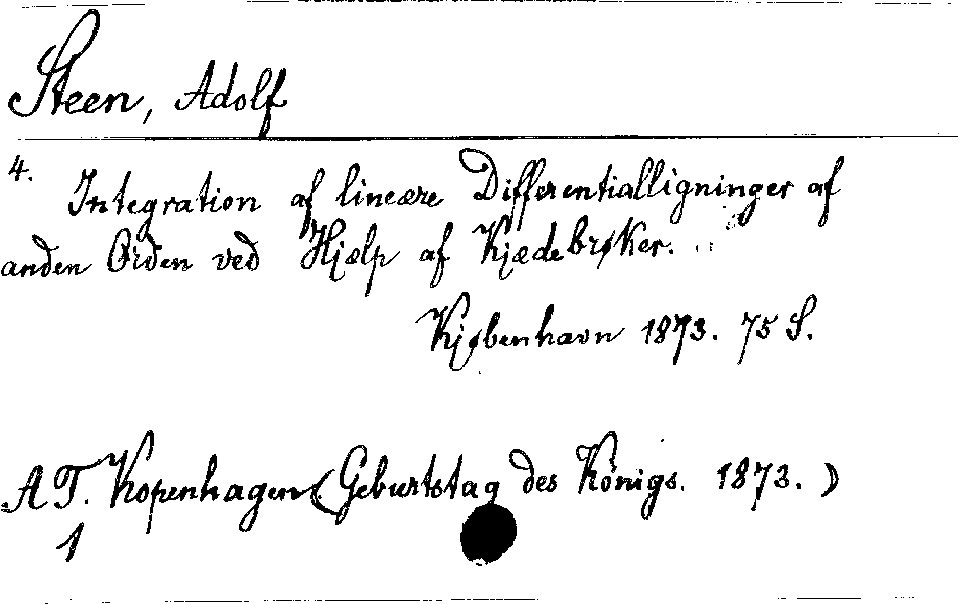 Steen, Adolf
4.
Integration af lineære Differentialligninger af
anden Orden ved Hjælp af Kjædebrøker.
Kjøbenhavn 1873. 75 S.
A T. Kopenhagen (Geburtstag des Königs. 1873.)
1